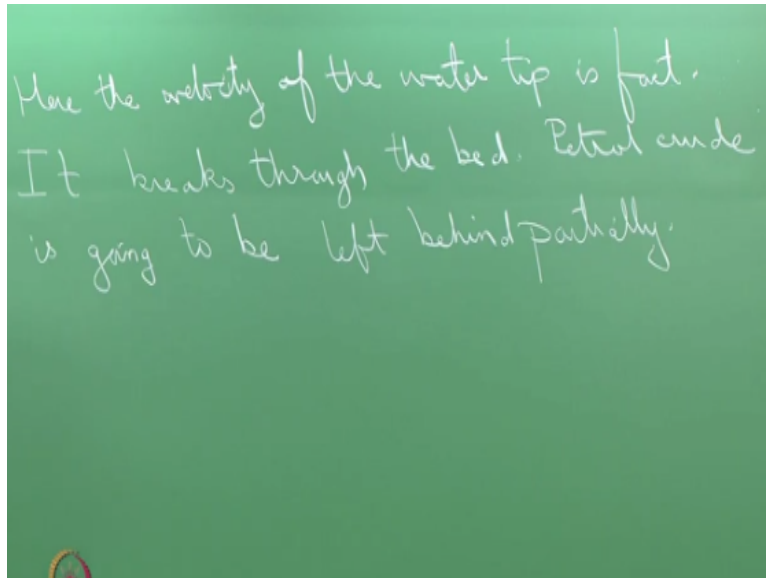 Here the velocity of the water tip is fast.
It breaks through the bed. Petrol crude
is going to be left behind partially.